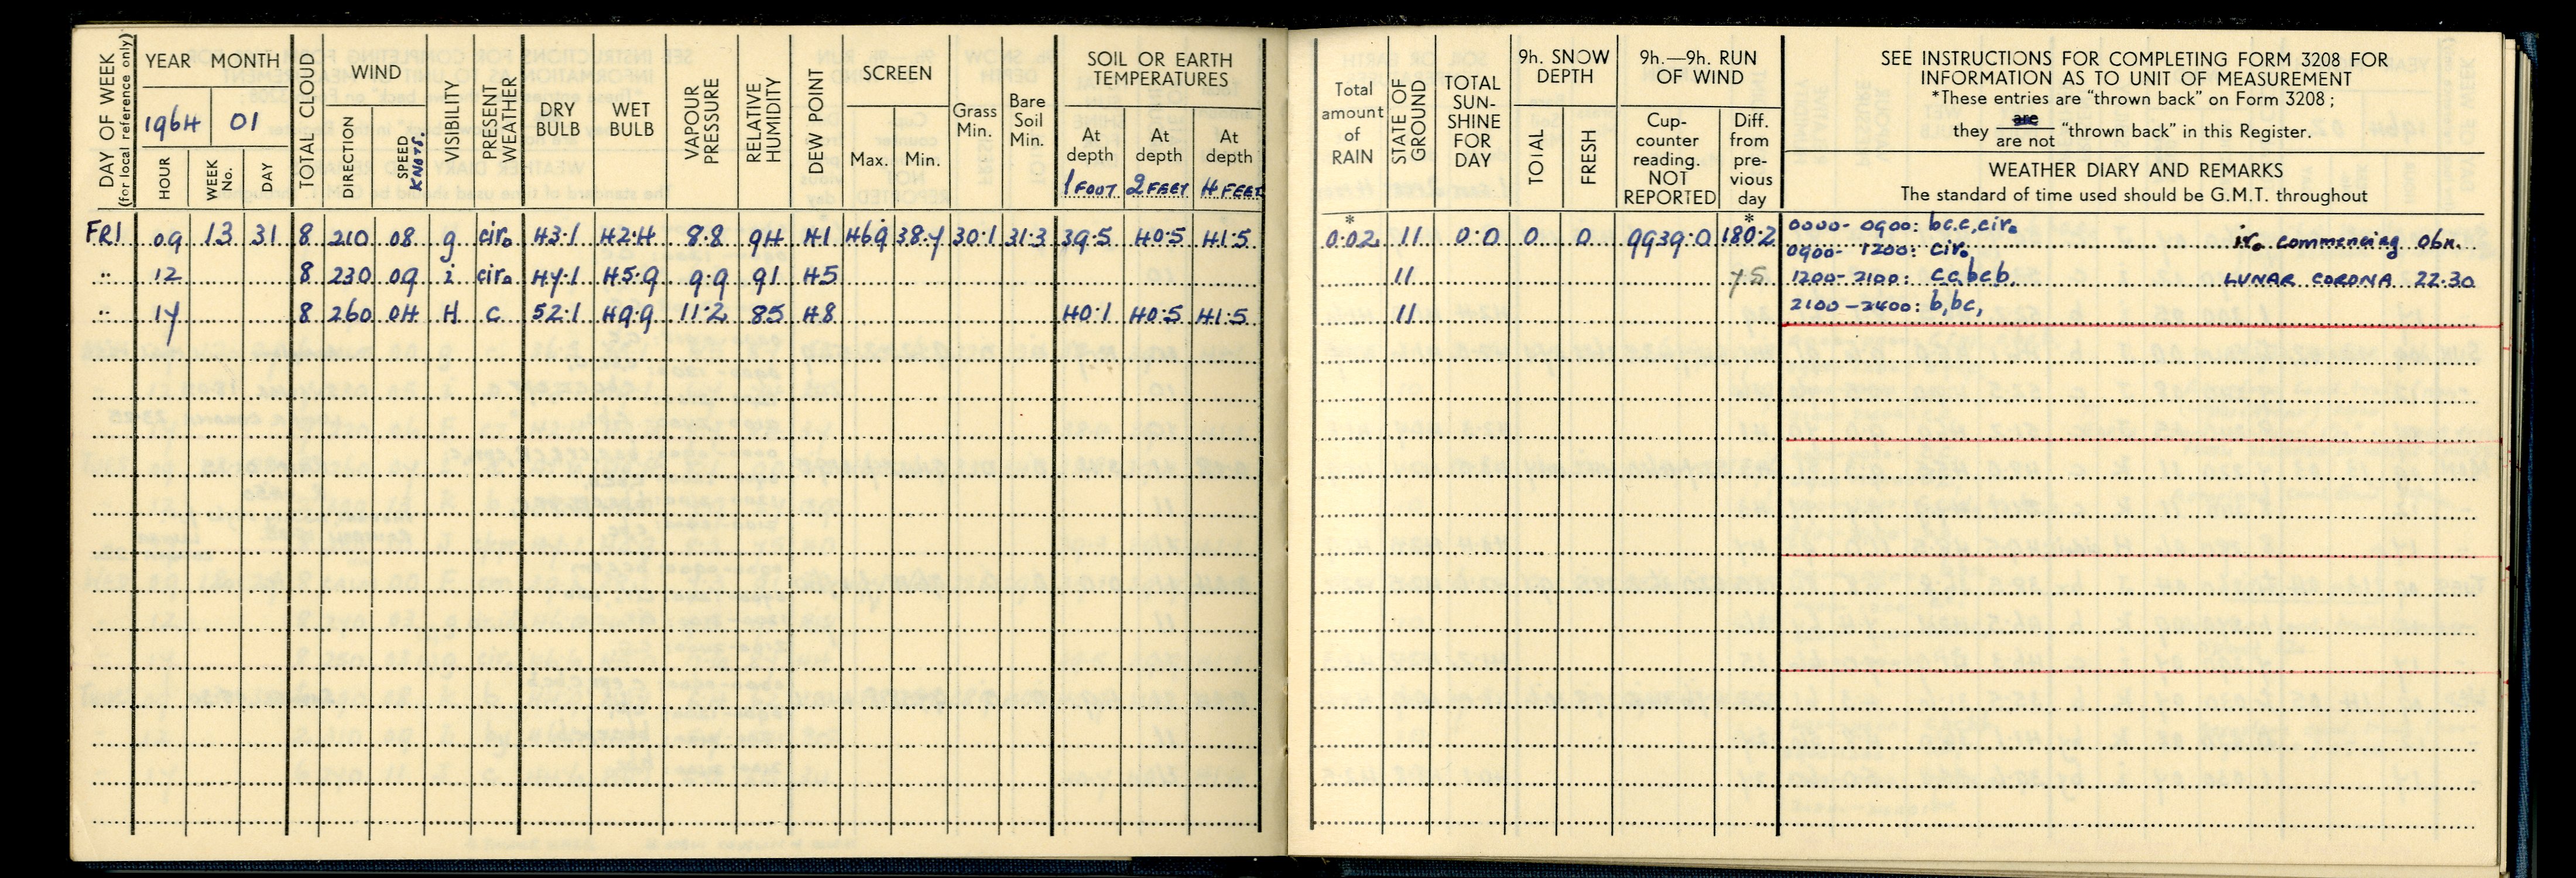 DAY OF WEEK (for local reference only) YEAR MONTH TOTAL CLOUD WIND VISIBILITY PRESENT WEATHER DRY BULB WET BULB VAPOUR PRESSURE RELATIVE HUMIDITY DEW POINT SCREEN Grass Min. Bare Soil Min. SOIL OR EARTH TEMPERATURES
1964 01
HOUR WEEK No. DAY DIRECTION SPEED KNOTS. Max. Min. At depth 1 FOOT At depth 2 FEET At depth 4 FEET
Total amount of RAIN STATE OF GROUND TOTAL SUN-SHINE FOR DAY 9h. SNOW DEPTH 9h.—9h. RUN OF WIND
TOTAL FRESH Cup-counter reading. NOT REPORTED Diff. from pre-vious day
SEE INSTRUCTIONS FOR COMPLETING FORM 3208 FOR
INFORMATION AS TO UNIT OF MEASUREMENT
*These entries are "thrown back" on Form 3208;
they are / are not "thrown back" in this Register.
WEATHER DIARY AND REMARKS
The standard of time used should be G.M.T. throughout
* *
FRI 09 13 31 8 210 08 g cir₀ 43.1 42.4 8.8 94 41 46.9 38.7 30.1 31.3 39.5 40.5 41.5 0.02 11 0.0 0 0 9939.0 180.2 0000- 0900: bc.c,cir₀ ir₀ commencing 06h.
0900- 1200: cir₀
" 12 8 230 09 i cir₀ 47.1 45.9 9.9 91 45 11 7.5 1200-2100: c,c,bc,b, LUNAR CORONA 22.30
2100-2400: b,bc,
" 17 8 260 04 H c 52.1 49.9 11.2 85 48 40.1 40.5 41.5 11